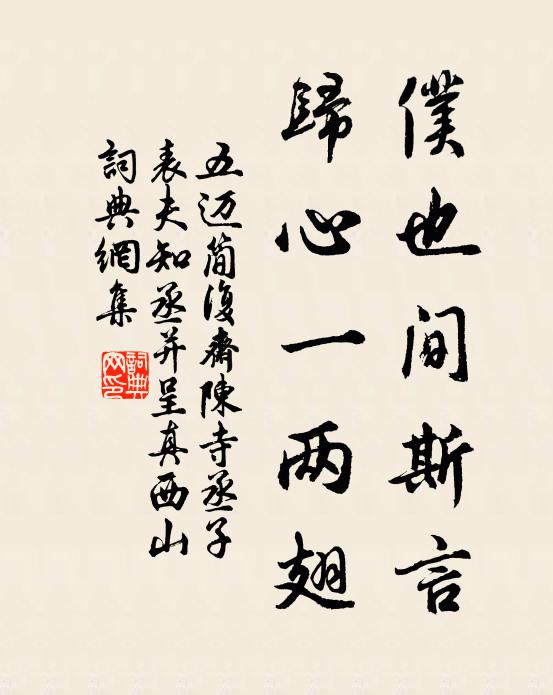 僕也间斯言
歸心一两翅
五迈简復齋陳寺丞子
表夫知丞并呈真西山
詞典網集
詞典網印